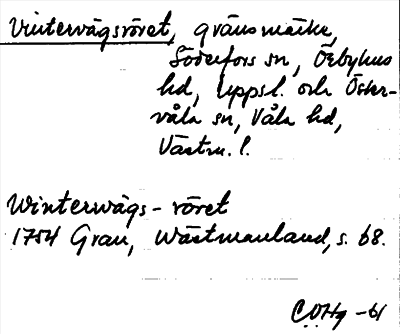 Vintervägsröret, gränsmärke,
Söderfors sn, Örbyhus
hd, Uppsl. och Öster-
våla sn, Våla hd,
Västm. l.
Winterwägs-röret
1754 Grau, Wästmanland, s. 68.
C.O.Hg -61